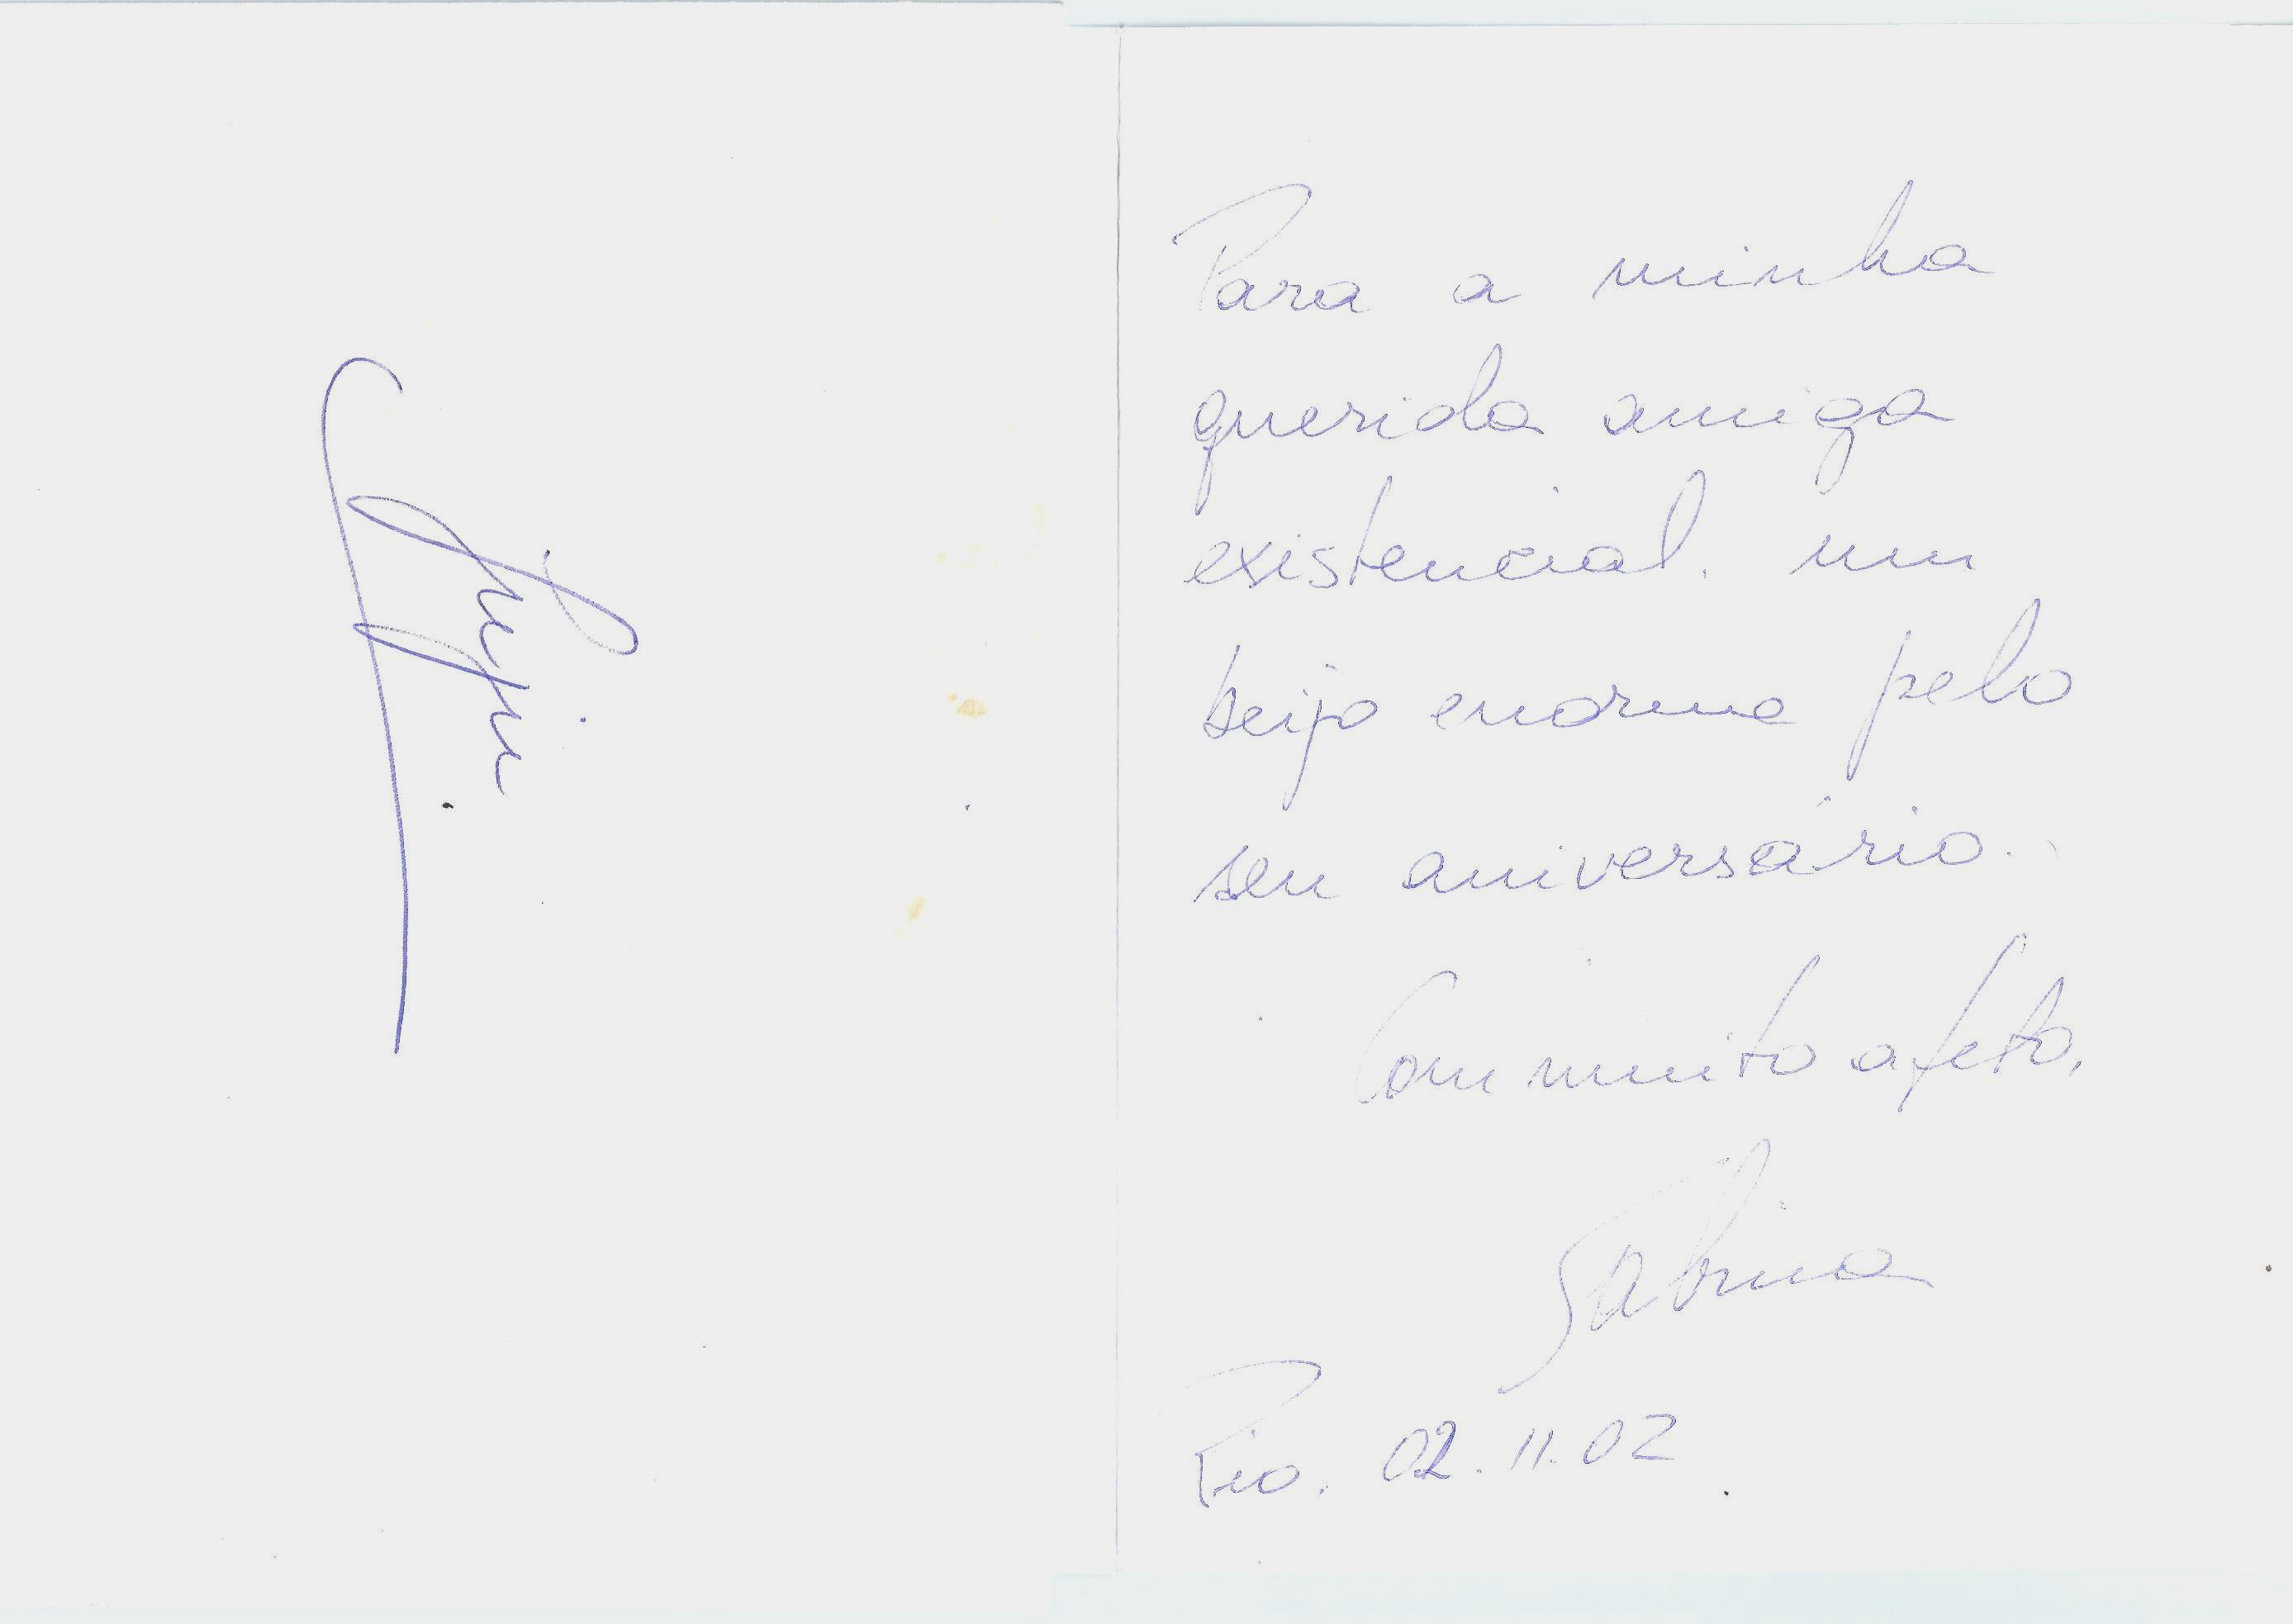 Para a minha
querida amiga
existencial. um
beijo enorme pelo
seu aniversário.
Com muito afeto,
Sabrina
Rio. 02.11.02